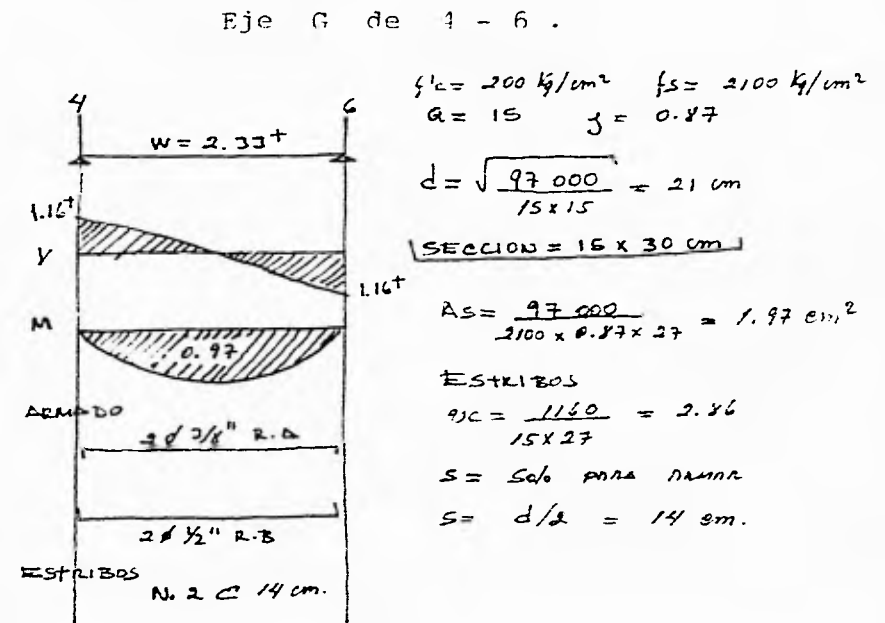 Eje G de 4 - 6 .
4 6
W = 2.33ᵗ
1.16ᵗ
V
1.16ᵗ
M
0.97
ARMADO
2 ∅ 3/8" R.A
2 ∅ 1/2" R.B
ESTRIBOS
No. 2 C 14 cm.
f'c = 200 kg/cm² fs = 2100 kg/cm²
Q = 15 j = 0.87
d = √ 97 000 / 15 x 15 = 21 cm
SECCION = 15 x 30 cm
As = 97 000 / 2100 x 0.87 x 27 = 1.97 cm²
ESTRIBOS
= 1160 / 15 x 27 = 2.86
S = Solo PARA ARMAR
S = d/2 = 14 cm.